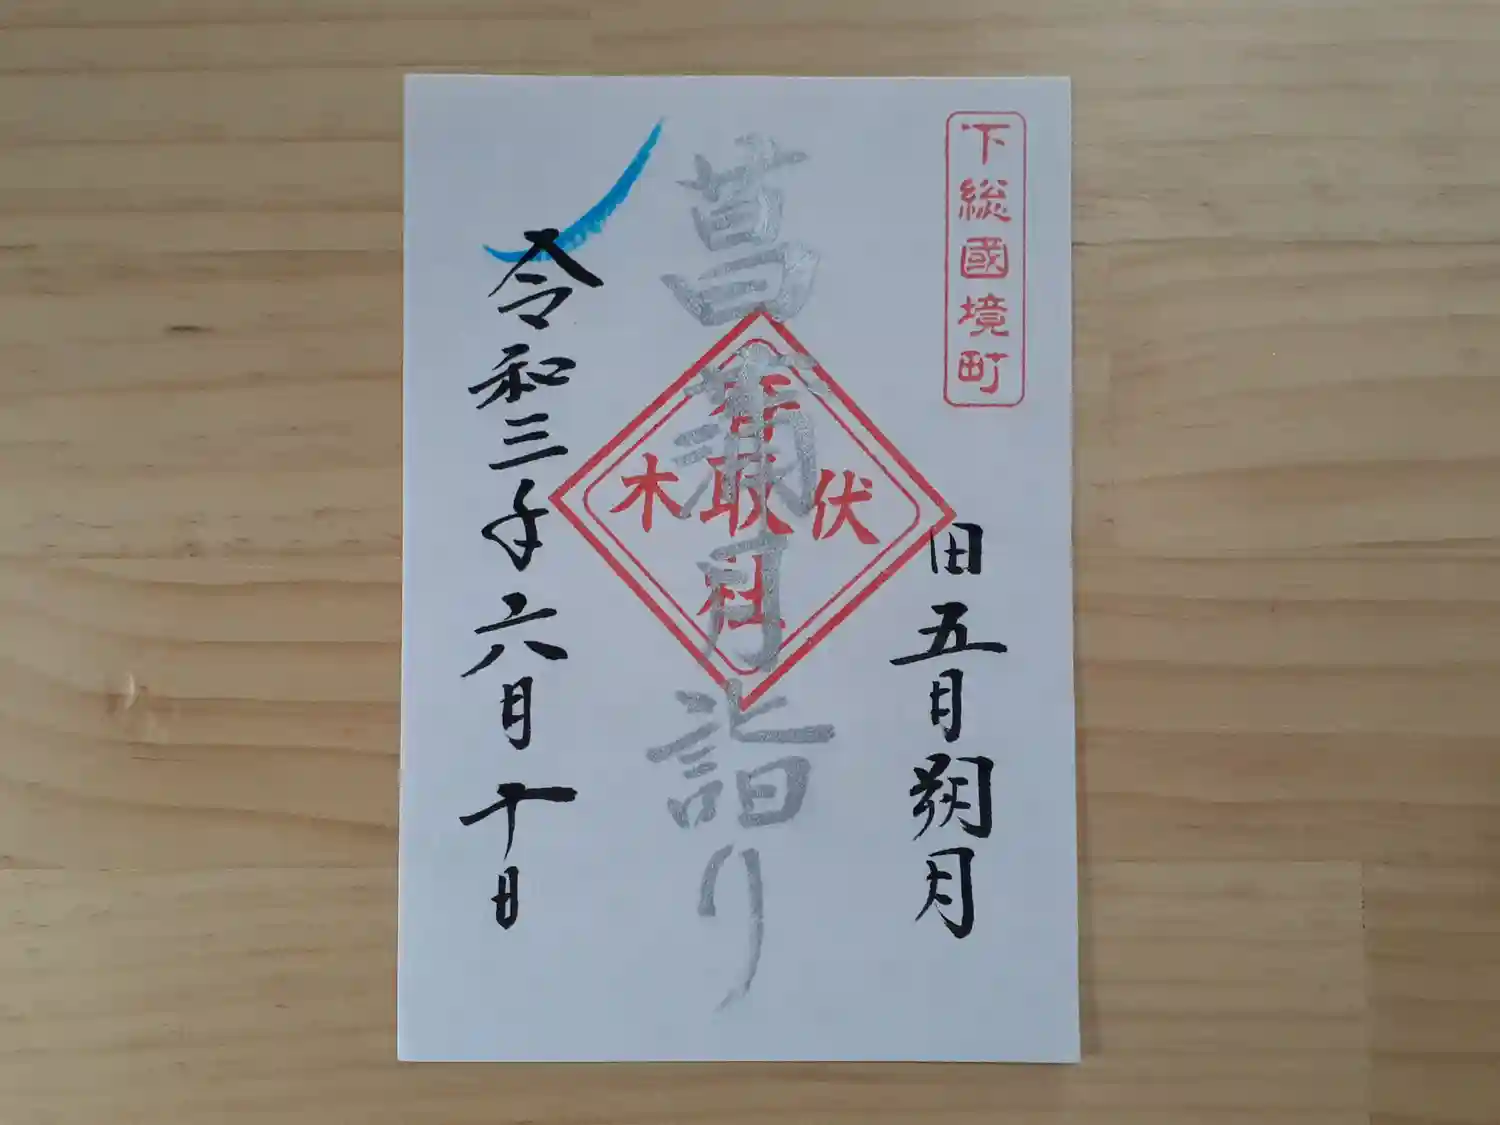 下総國境町
旧五月朔月
菖蒲月詣り
伏木
香取社
令和三年六月十日